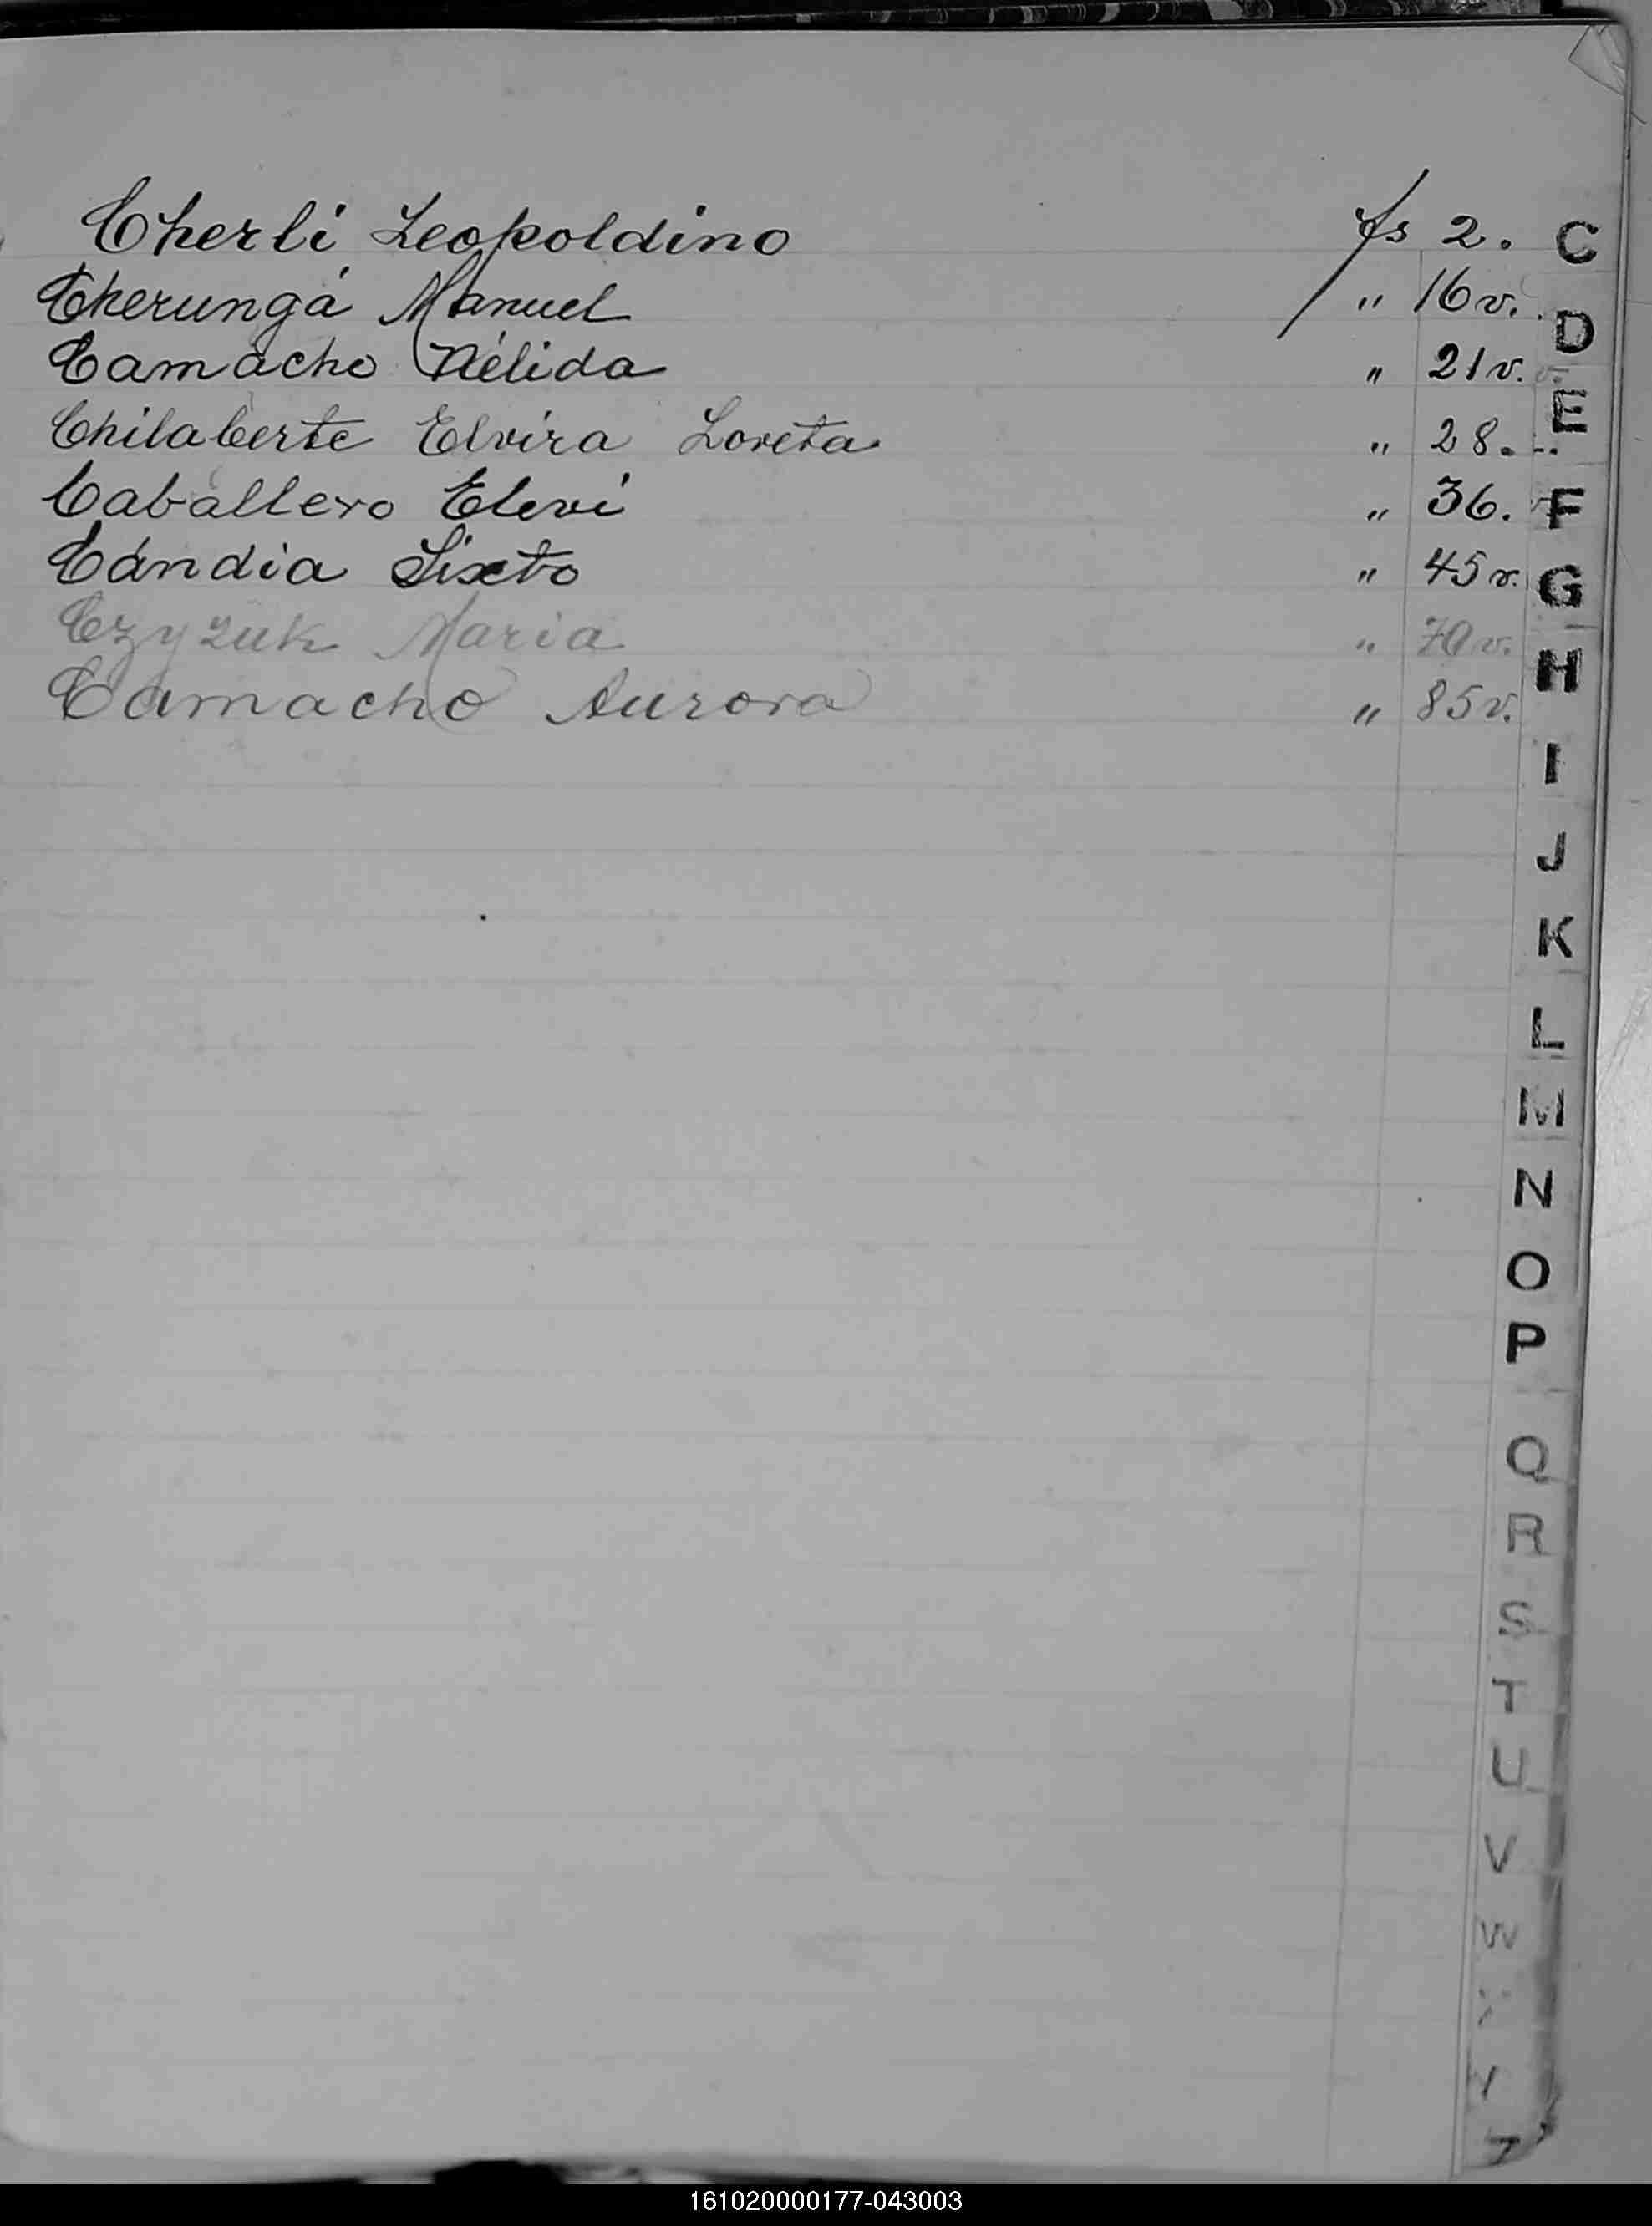 Cherli Leopoldino fs 2. C
Cherungá Manuel " 16v. D
Camacho Nélida " 21v.
Chilaberte Elvira Loreta " 28. E
Caballero Eleví " 36. F
Cándia Sixto " 45v. G
Czyzuk Maria " 70v. H
Camacho Aurora " 85v.
I
J
K
L
M
N
O
P
Q
R
S
T
U
V
W
Y
Z
161020000177-043003